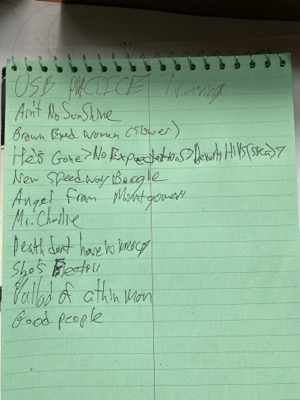 USB PRACTICE
Ain't No Sunshine
Brown Eyed women (slower)
He's Gone > No Expectations > Beverly Hills (ska) >
New Speedway Boogie
Angel From Montgomery
Mr. Charlie
Death dont have no mercy
She's Electric
Ballad of a thin man
Good people